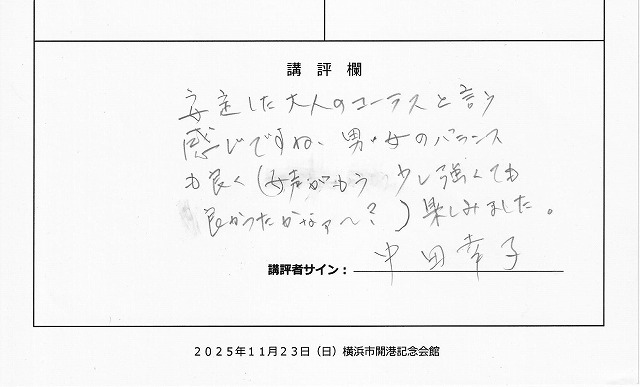 講 評 欄
安定した大人のコーラスと言う
感じですね、男・女のバランス
も良く(女声がもう 少し強くても
良かったかなァ〜?)楽しみました。
講評者サイン: 中田幸子
2025年11月23日(日)横浜市開港記念会館